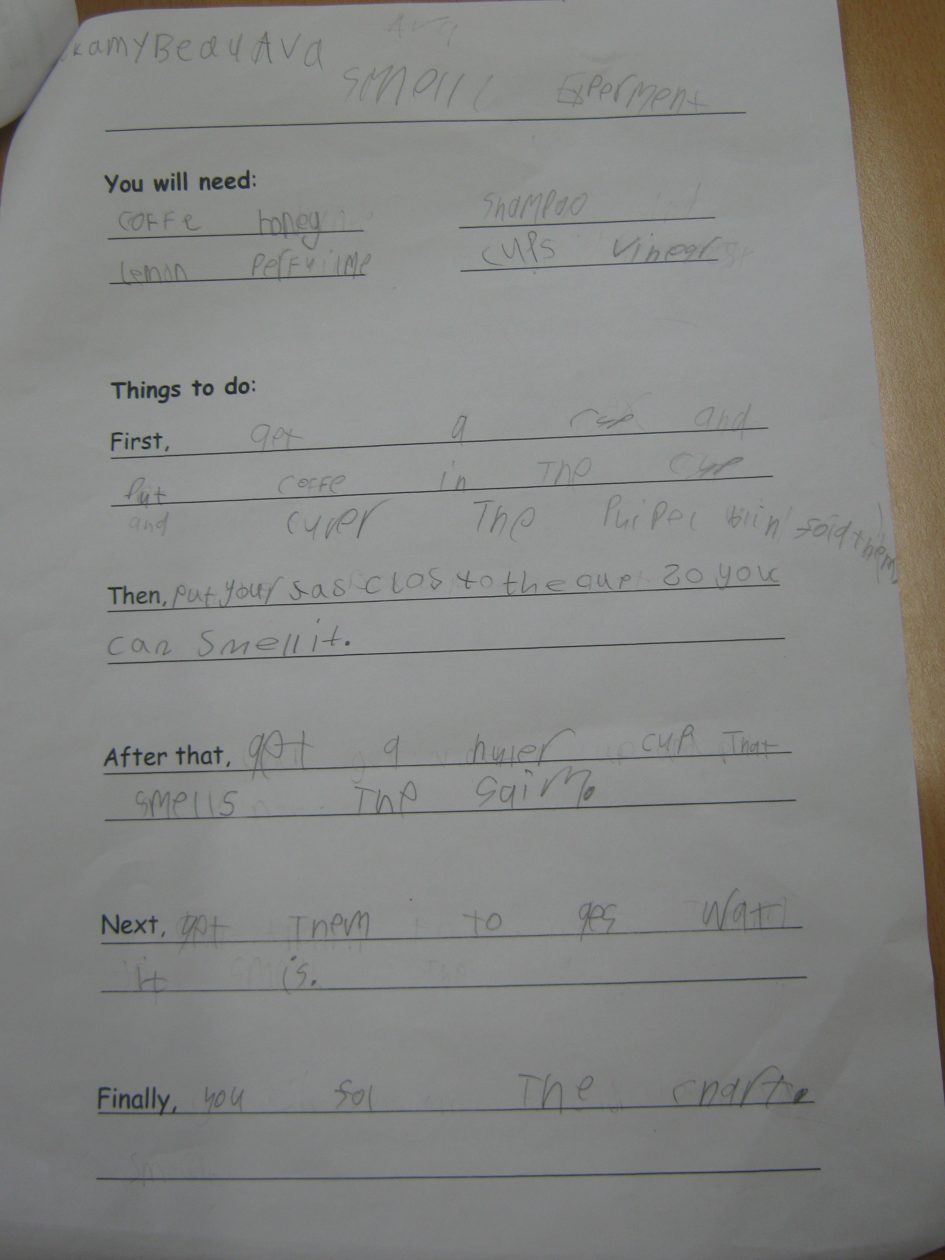 kamyBeauAva Ava
smell Experment
You will need:
coffe honey shampoo
lemin perfuime cups vinegr
Things to do:
First, get a cup and
put coffe in the cup
and cuver The puiper
Then, put your sas clos to the cup so you
can smell it.
After that, get a nuver cup That
smells The saim.
Next, get Them to ges wat
it is.
Finally, you fol The chart.